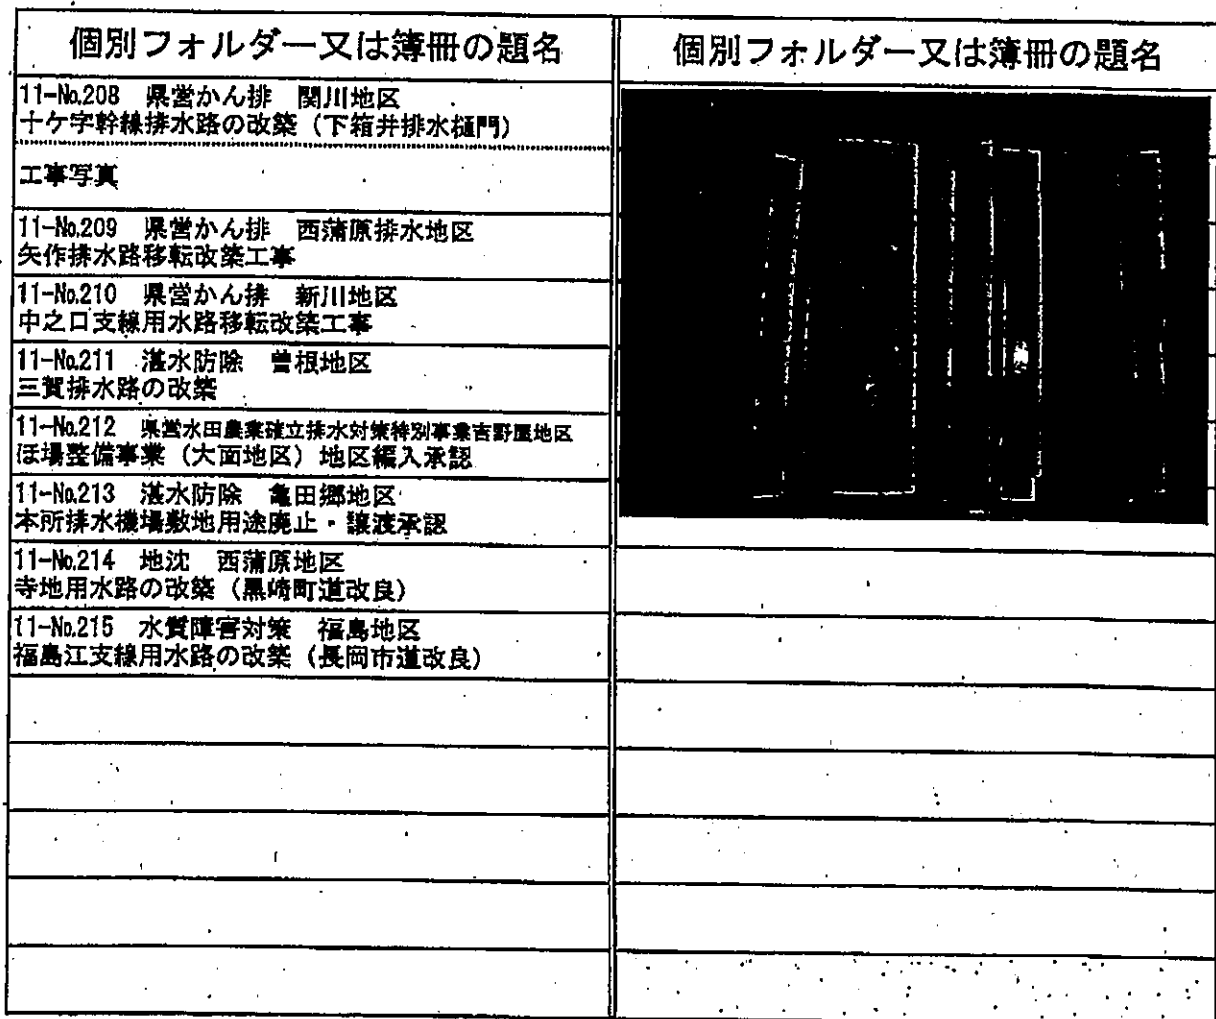 個別フォルダー又は簿冊の題名
11-№208 県営かん排 関川地区
十ケ字幹線排水路の改築(下箱井排水樋門)
工事写真
11-№209 県営かん排 西蒲原排水地区
矢作排水路移転改築工事
11-№210 県営かん排 新川地区
中之口支線用水路移転改築工事
11-№211 湛水防除 曽根地区
三賀排水路の改築
11-№212 県営水田農業確立排水対策特別事業吉野屋地区
ほ場整備事業(大面地区)地区編入承認
11-№213 湛水防除 亀田郷地区
本所排水機場敷地用途廃止・譲渡承認
11-№214 地沈 西蒲原地区
寺地用水路の改築(黒崎町道改良)
11-№215 水質障害対策 福島地区
福島江支線用水路の改築(長岡市道改良)
個別フォルダー又は簿冊の題名